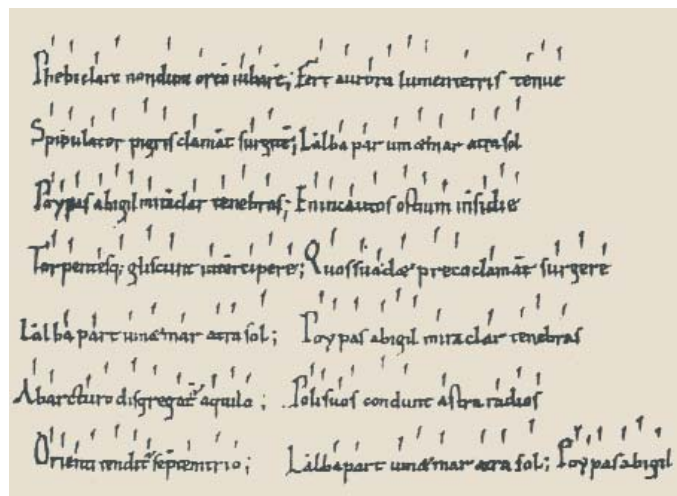 Phebi claro nondum orto iubare; Fert aurora lumen terris tenue
Spiculator pigris clamat surgite; Lalba par umæ mar atra sol
Poypas abigil miraclar tenebras; En incautos ostium insidie
Torpentesq; gliscunt intercipere; Quos suadæ preco clamat surgere
Lalba part umæ mar atra sol; Poypas abigil miraclar tenebras
Abarcturo disgregat͛ aquilo; Poli suos condunt astra radios
Orienti tendit͛ septemtrio; Lalba part umæ mar atra sol; Poypas abigil